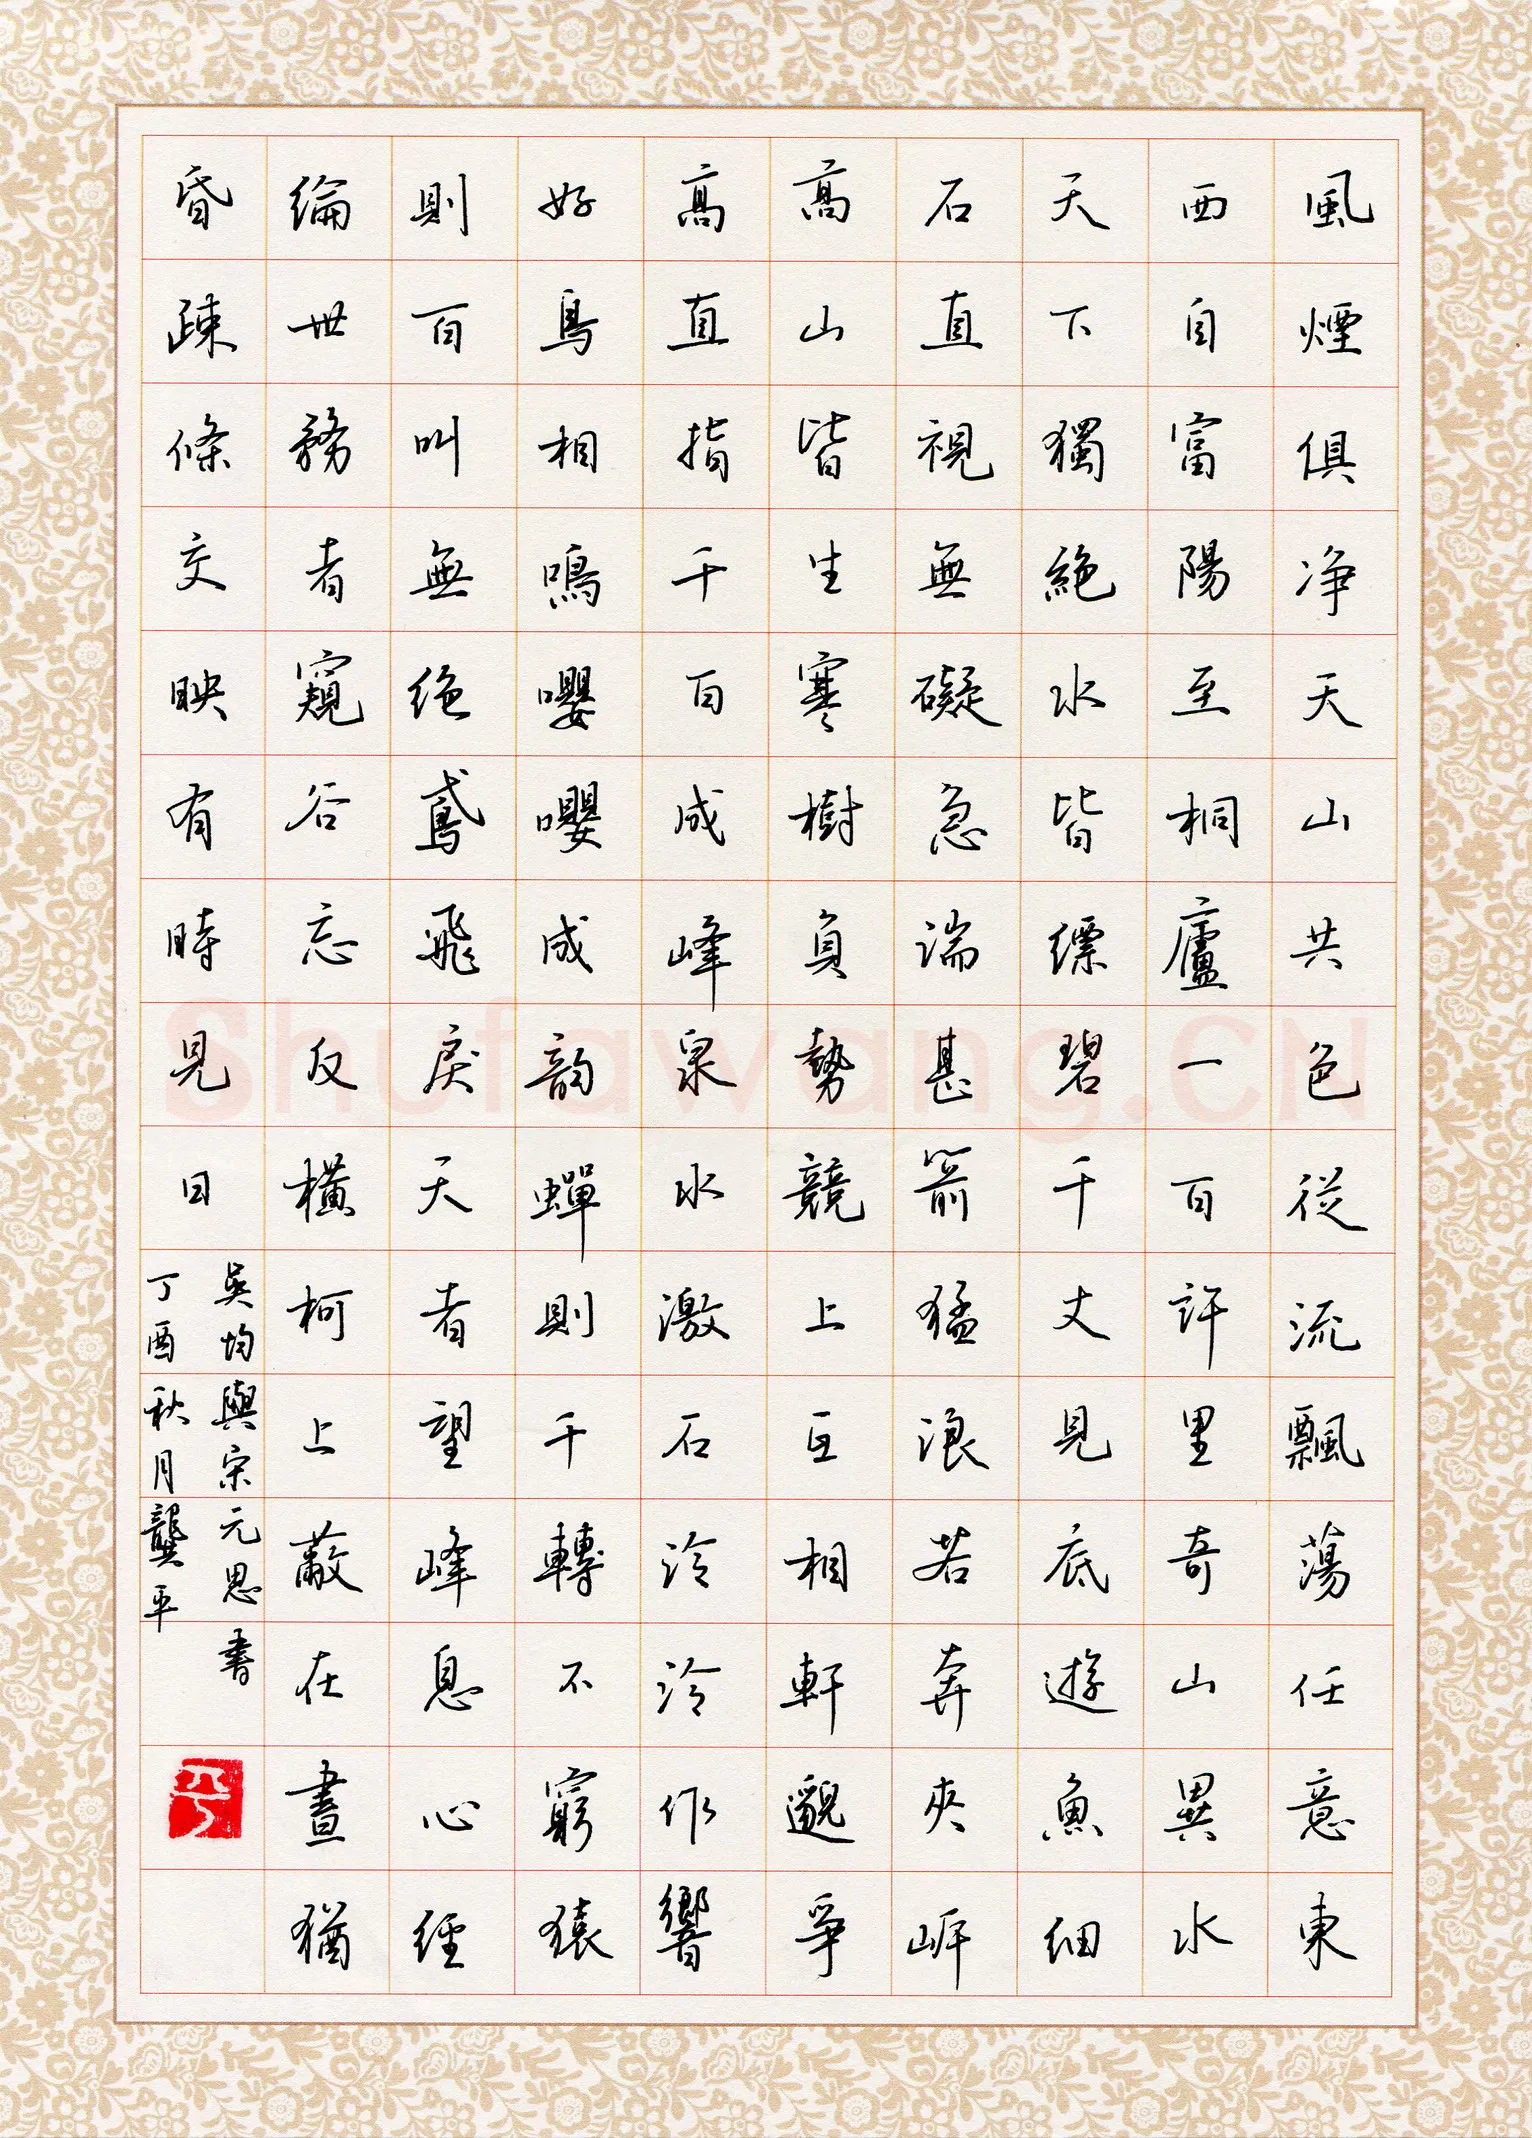 風煙俱净天山共色從流飄蕩任意東
西自富陽至桐廬一百許里奇山異水
天下獨絶水皆縹碧千丈見底遊魚細
石直視無礙急湍甚箭猛浪若奔夾岸
高山皆生寒樹負勢競上互相軒邈爭
高直指千百成峰泉水激石泠泠作響
好鳥相鳴嚶嚶成韵蟬則千轉不窮猿
則百叫無絶鳶飛戾天者望峰息心經
綸世務者窺谷忘反橫柯上蔽在晝猶
昏疎條交映有時見日
吳均與宋元思書
丁酉秋月龔平
Shufawang.CN